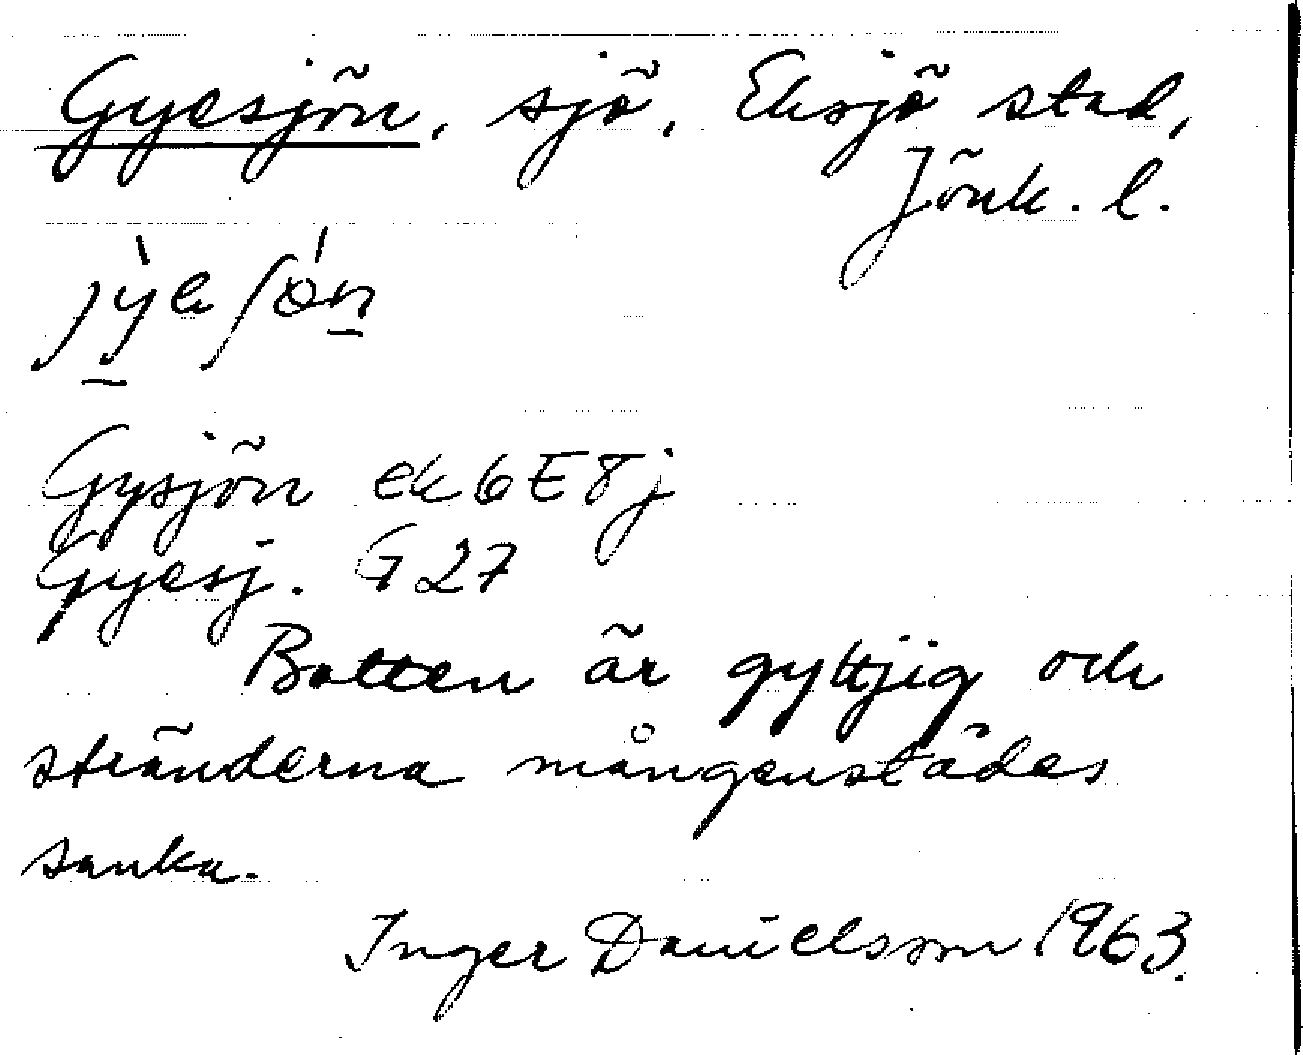 Gyesjön, sjö, Eksjö stad,
Jönk. l.
Gysjön ek 6E8j
Gyesj. G 27
Botten är gyttjig och
stränderna mångenstädes
sanka.
Inger Danielsson 1963.